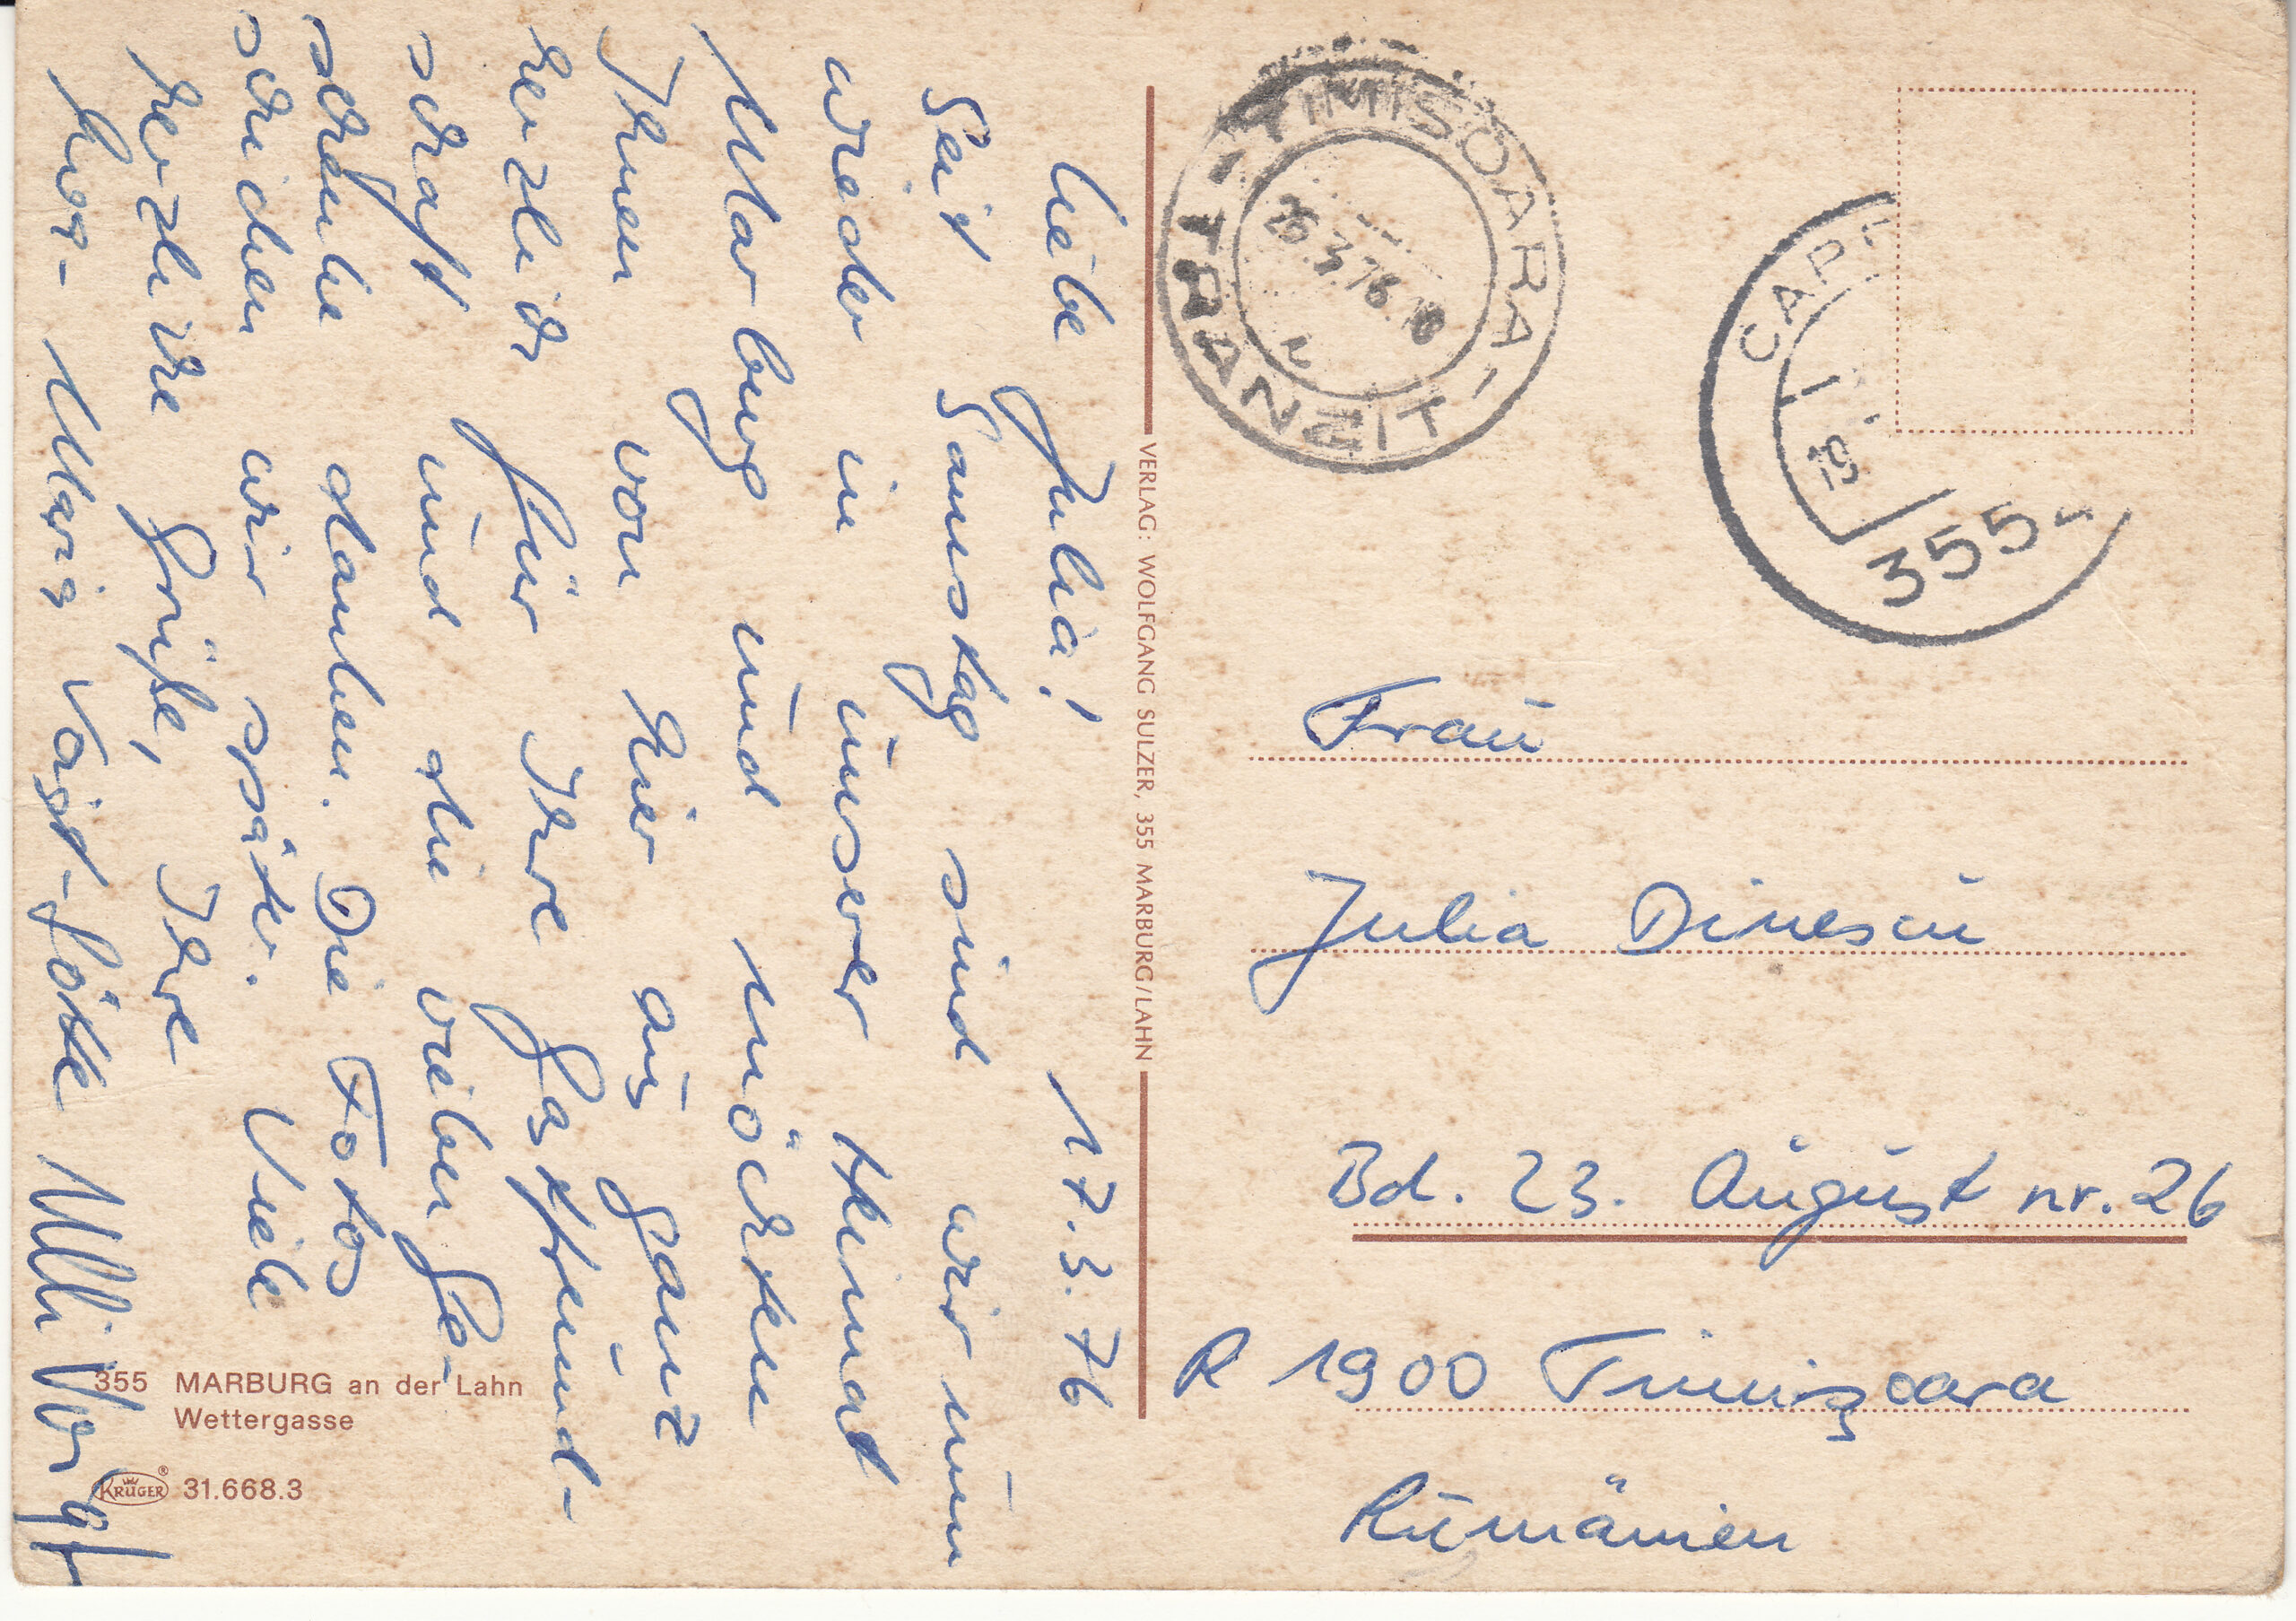 Liebe Julia! 17.3.76
Seit Samstag sind wir nun
wieder in unserer Heimat
Marburg und möchten
Ihnen von hier aus ganz
herzlich für Ihre Gastfreund-
schaft und die vielen Ge-
schenke danken. Die Fotos
schicken wir später. Viele
herzliche Grüße, Ihre
Inge-Maria Voigt-Götte Ulli Voigt
VERLAG: WOLFGANG SULZER, 355 MARBURG/LAHN
355 MARBURG an der Lahn
Wettergasse
KRÜGER® 31.668.3
TIMISOARA 1
TRANZIT
3.76
CAP
355
Frau
Julia Dinescu
Bd. 23. August nr. 26
R 1900 Timișoara
Rumänien